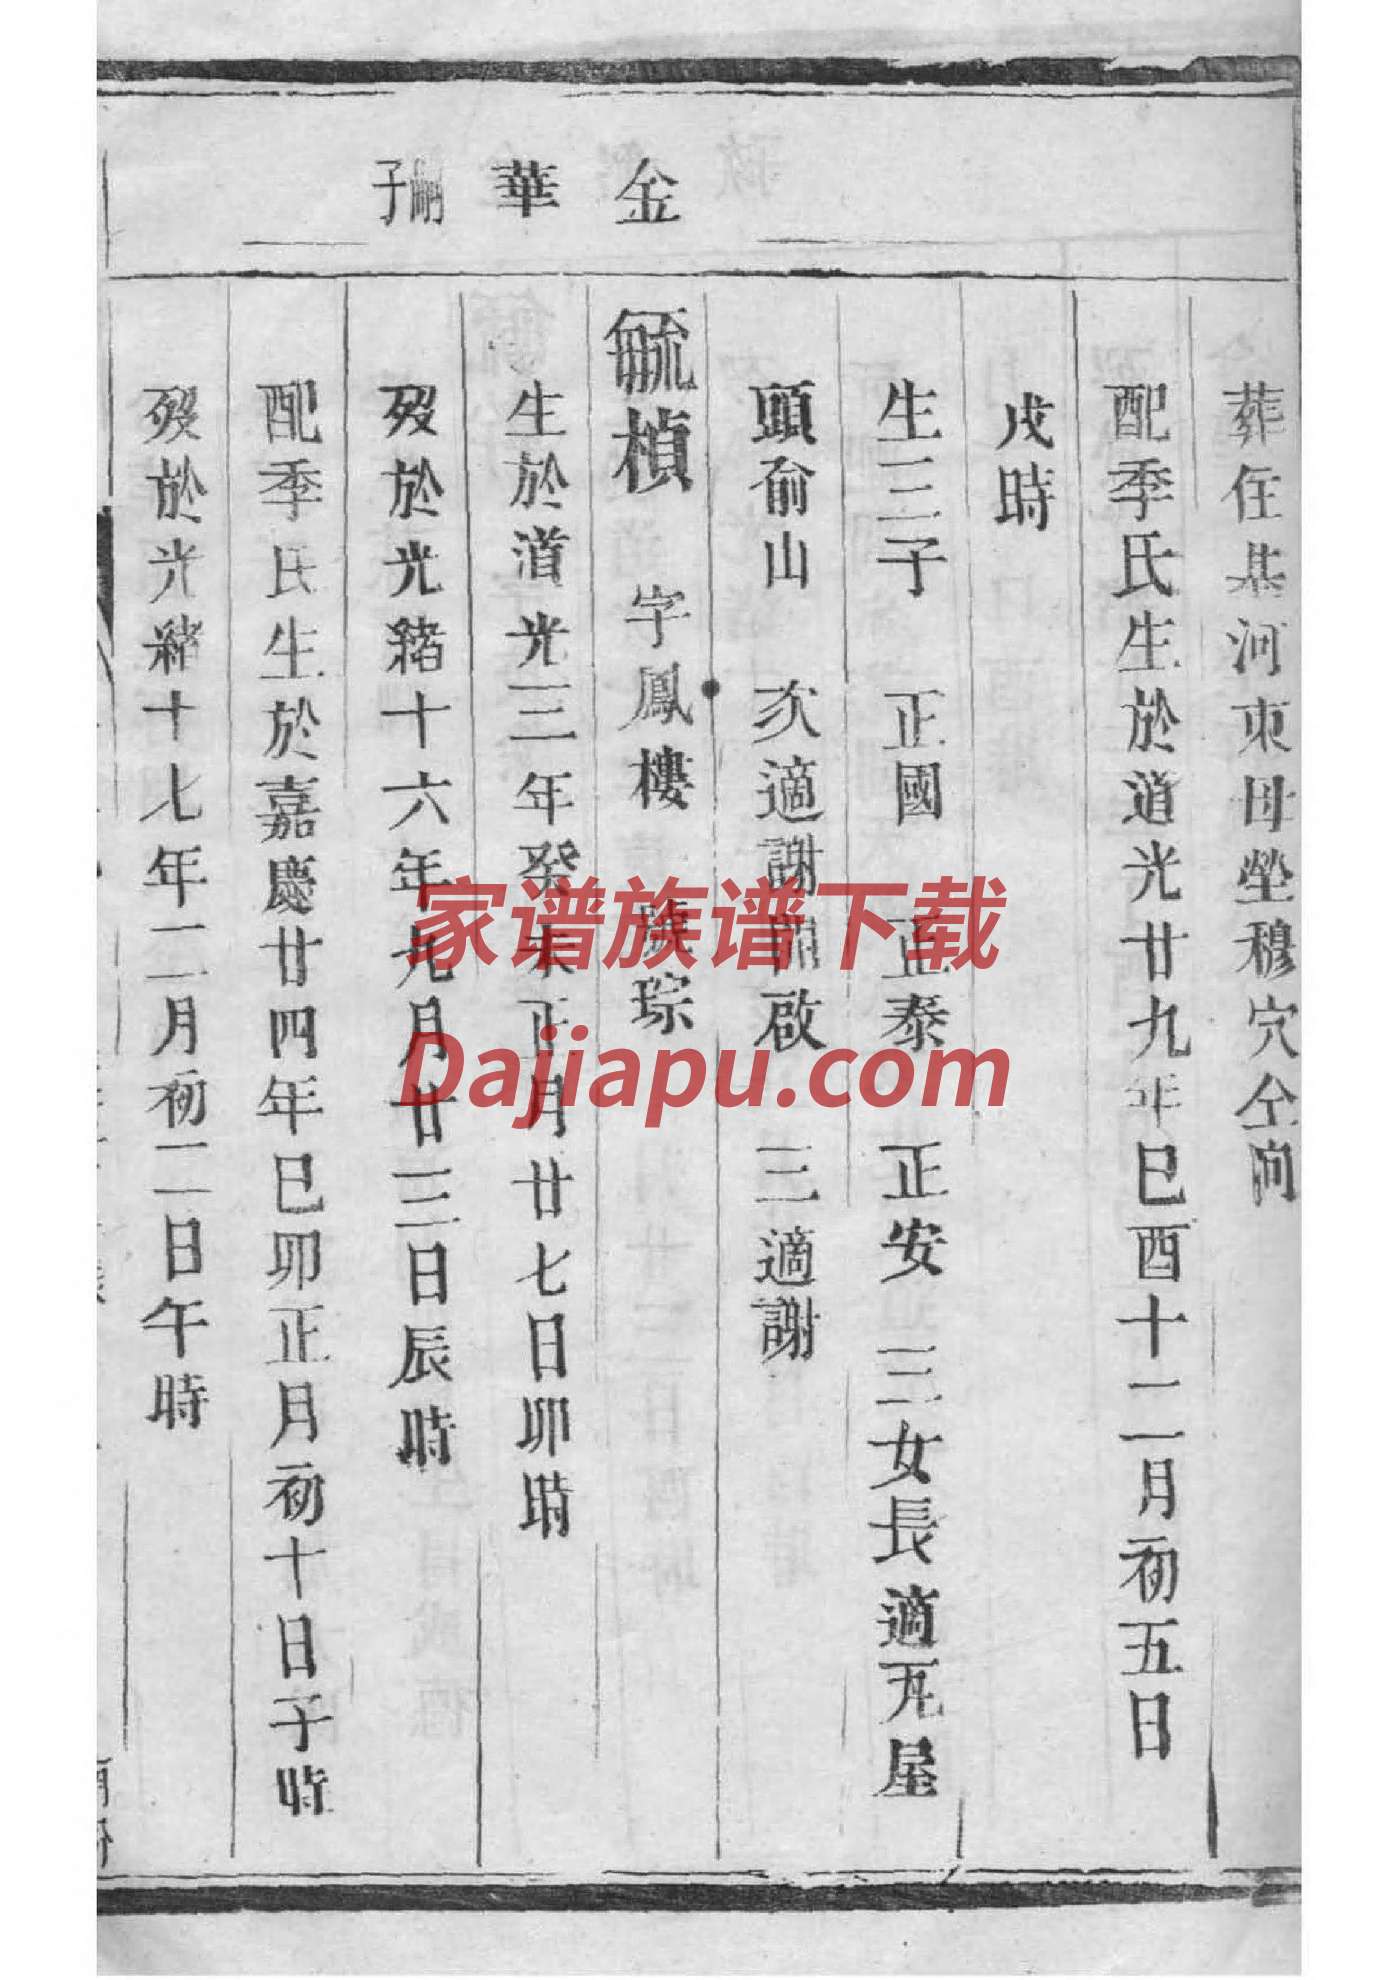 金華嗣子
葬在基河東母塋穆穴仝向
配季氏生於道光廿九年巳酉十二月初五日
戌時
生三子 正國 正泰 正安 三女長適瓦屋
頭俞山 次適謝開啟 三適謝
毓楨 字鳳樓 號琮
生於道光三年癸未正月廿七日卯時
歿於光緒十六年九月廿三日辰時
配季氏生於嘉慶廿四年巳卯正月初十日子時
歿於光緒十七年二月初二日午時
家谱族谱下载
Dajiapu.com